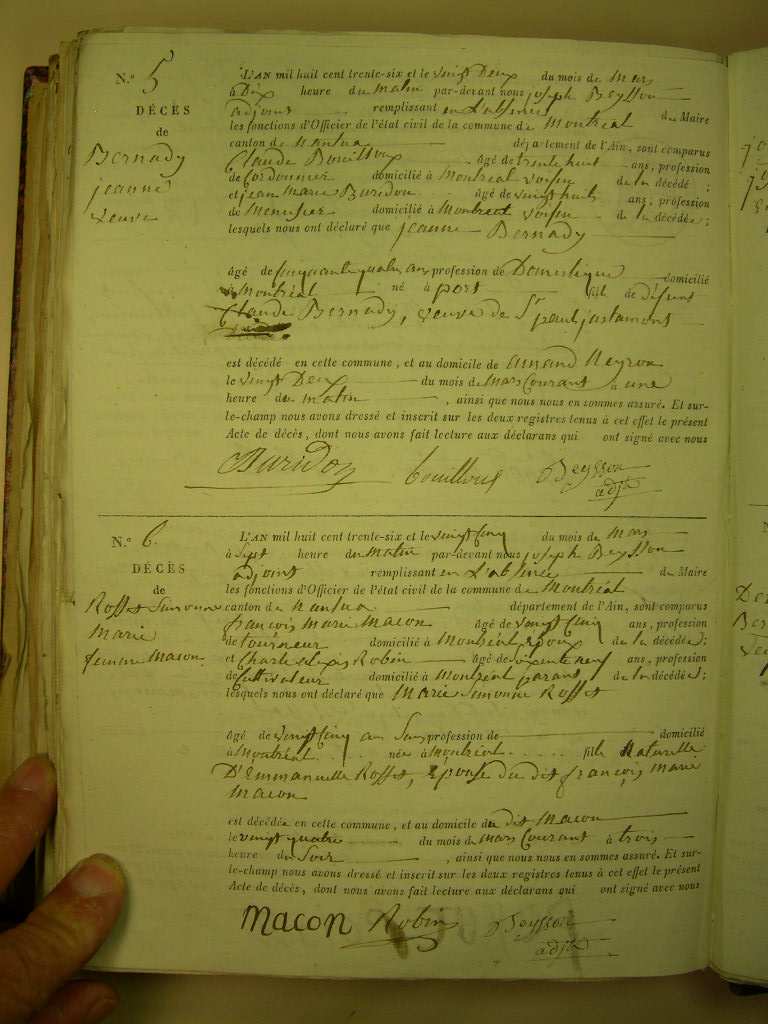 N.º 5
DÉCÈS
de
Bernady
jeanne
veuve
L'AN mil huit cent trente-six et le vingt Deux du mois de Mars
à Dix heure du Matin par-devant nous joseph Beysson
adjoint remplissant en L'absence du Maire
les fonctions d'Officier de l'état civil de la commune de Montréal
canton de Nantua département de l'Ain, sont comparus
Claude Bouilloux âgé de trente huit ans, profession
de Cordonnier domicilié à Montréal voisin de la décédé ;
et jean Marie Buridon âgé de vingt huit ans, profession
de Menusier domicilié à Montréal voisin de la décédé ;
lesquels nous ont déclaré que jeanne Bernady
âgé de cinquante quatre ans profession de Domestique domicilié
à Montréal né à port fille de défunt
Claude Bernady, veuve de St paul
est décédé en cette commune, et au domicile de armand Neyron
le vingt Deux du mois de Mars Courant à une
heure du matin , ainsi que nous nous en sommes assuré. Et sur-
le-champ nous avons dressé et inscrit sur les deux registres tenus à cet effet le présent
Acte de décès, dont nous avons fait lecture aux déclarans qui ont signé avec nous
Buridon bouilloux Beysson
adjt
N.º 6.
DÉCÈS
de
Roffet Simonne
Marie
femme Macon.
L'AN mil huit cent trente-six et le vingt Cinq du mois de Mars
à Sept heure du Matin par-devant nous joseph Beysson
adjoint remplissant en L'absence du Maire
les fonctions d'Officier de l'état civil de la commune de Montréal
canton de Nantua département de l'Ain, sont comparus
françois Marie Macon âgé de vingt Cinq ans, profession
de tourneur domicilié à Montréal Epoux de la décédée ;
et Charle alexis Robin âgé de ans, profession
de Cultivateur domicilié à Montréal parent de la décédée ;
lesquels nous ont déclaré que Marie Simonne Roffet
âgé de vingt Cinq ans Sans profession de domicilié
à Montréal née à Montréal fille Naturelle
D'Emmanuelle Roffet, Epouse du dit françois Marie
Macon
est décédée en cette commune, et au domicile du dit Macon
le vingt quatre du mois de Mars Courant à trois
heure du Soir , ainsi que nous nous en sommes assuré. Et sur-
le-champ nous avons dressé et inscrit sur les deux registres tenus à cet effet le présent
Acte de décès, dont nous avons fait lecture aux déclarans qui ont signé avec nous
Macon Robin Beysson
adjt